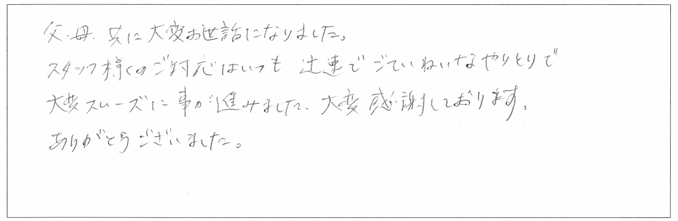 父、母、共に大変お世話になりました。
スタッフ様のご対応はいつも迅速でごていねいなやりとりで
大変スムーズに事が進みました、大変感謝しております。
ありがとうございました。